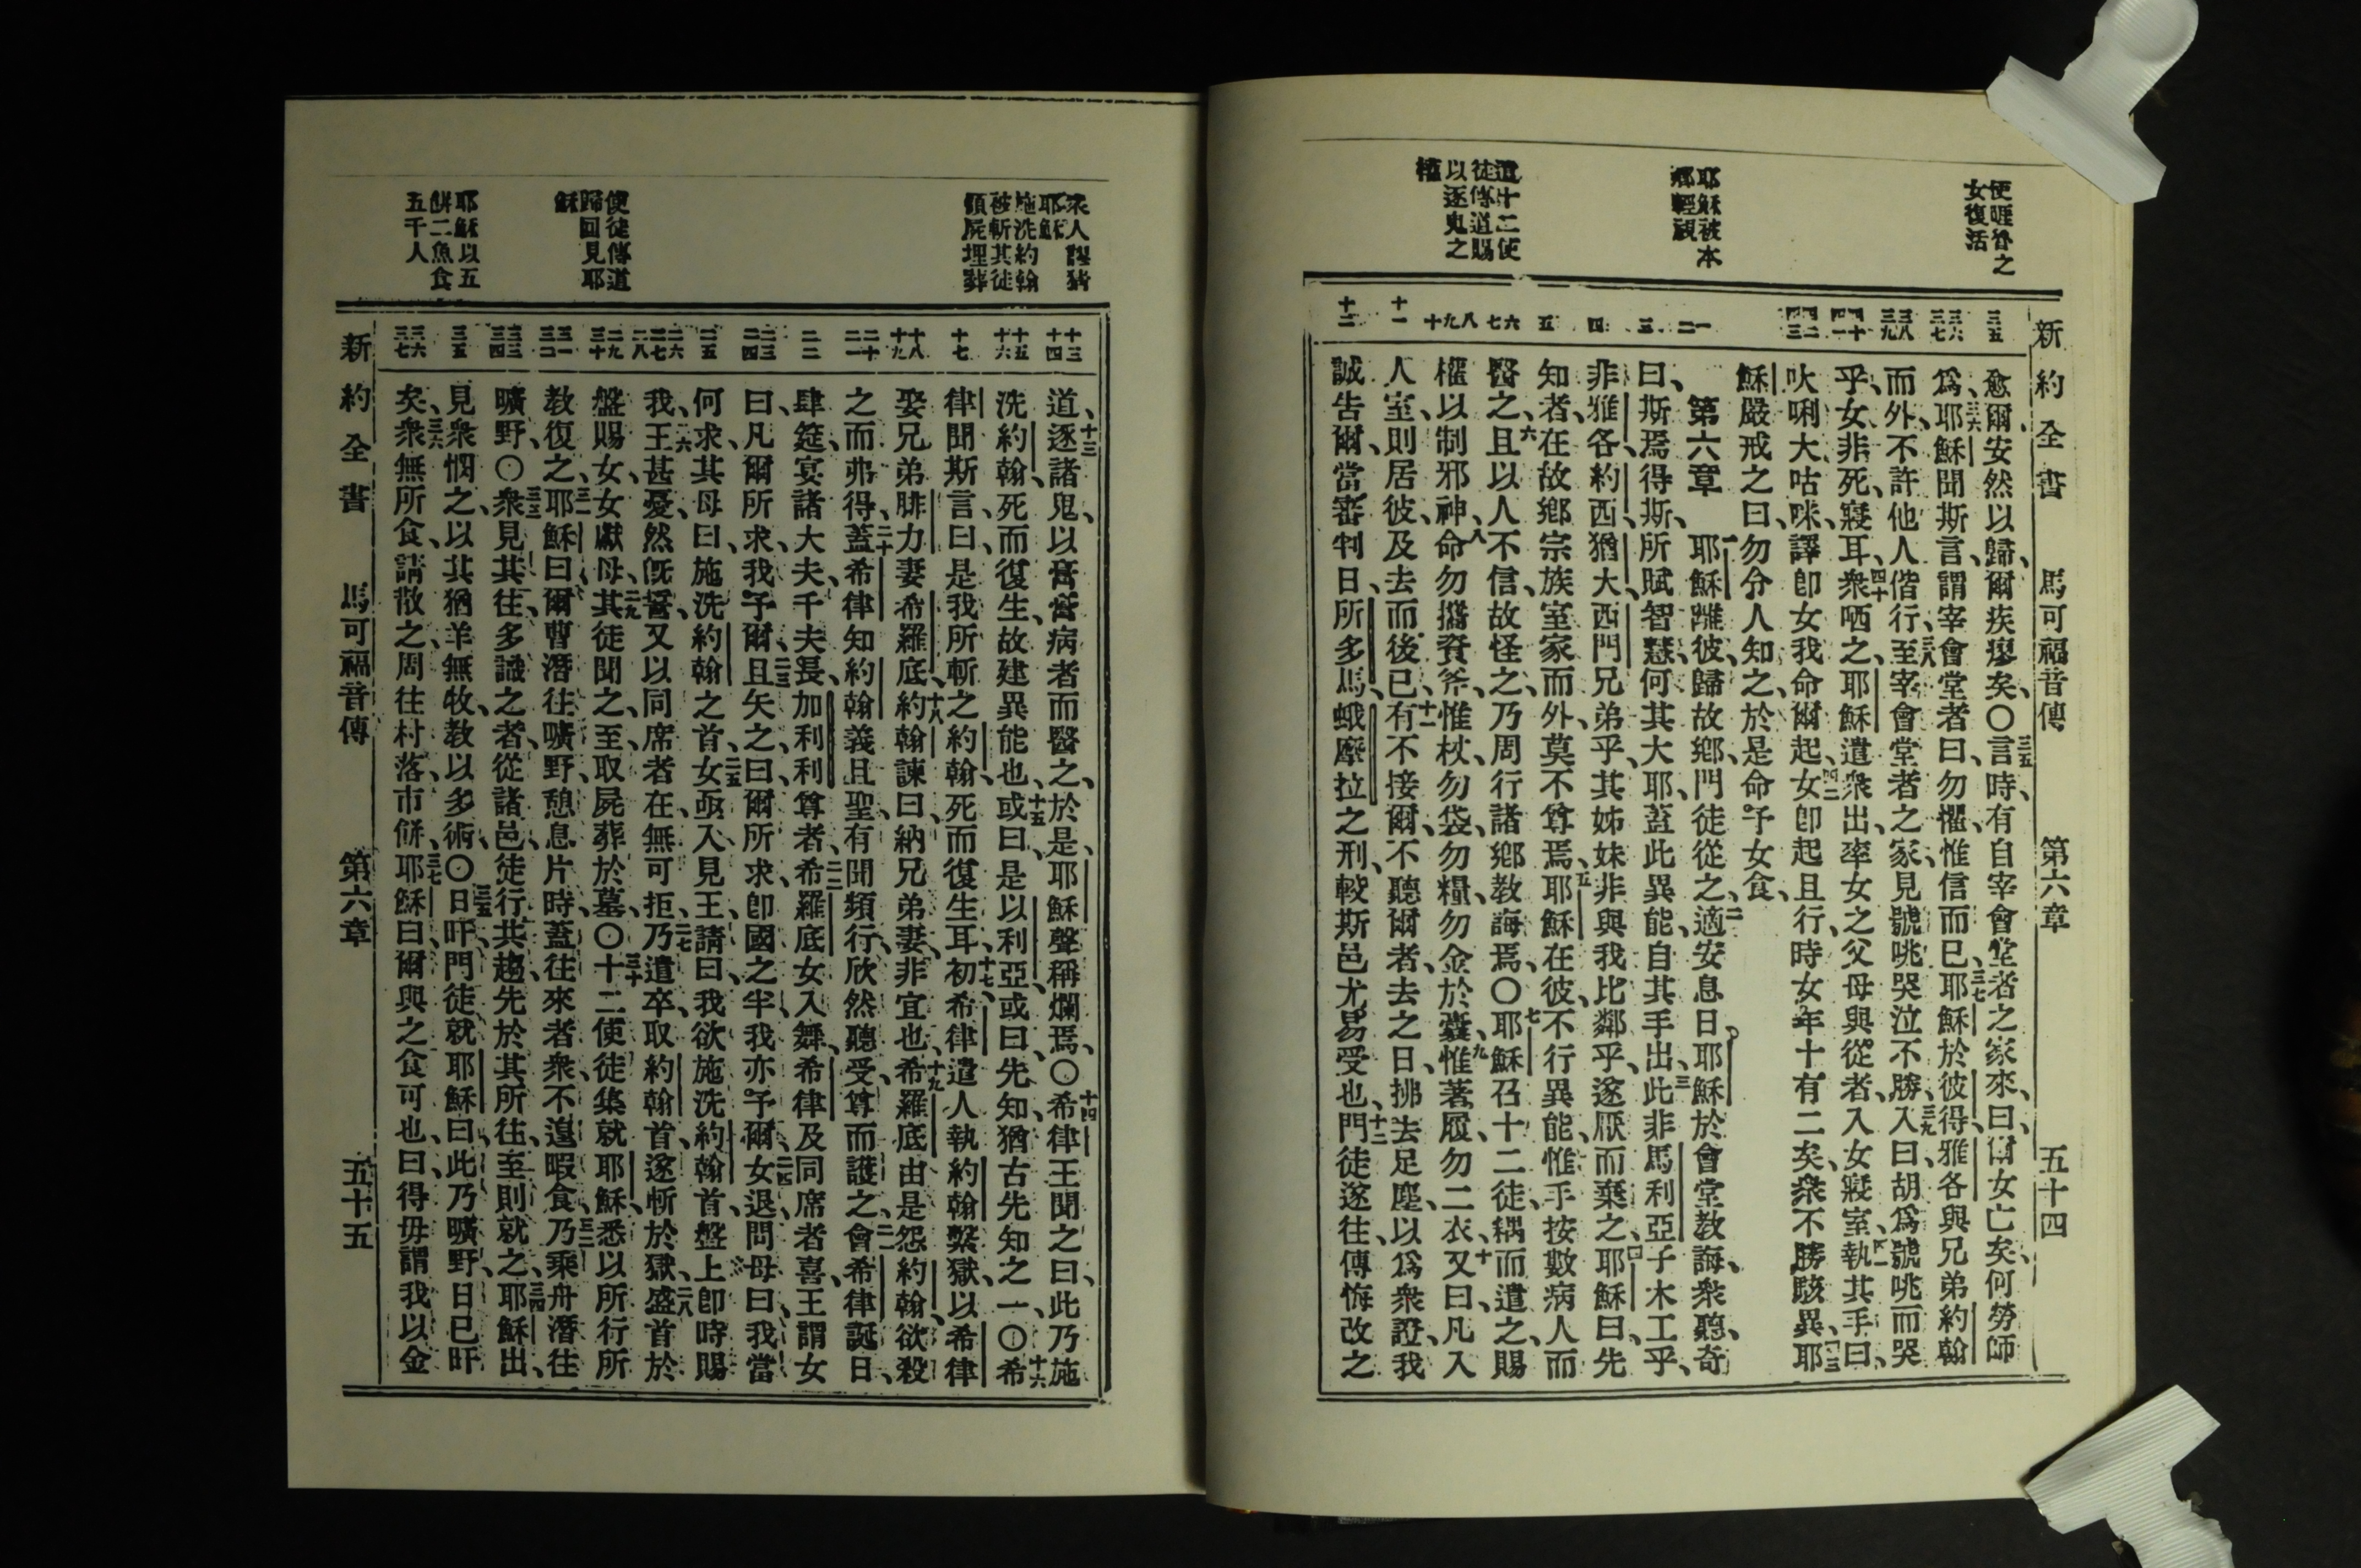 新約全書 馬可福音傳 第六章 五十四
使睚魯之
女復活
耶穌被本
鄉輕視
遣十二使
徒傳道賜
以逐鬼之
權
三五
三六
三七
三八
三九
四十
四一
四二
四三
一
二
三
四
五
六
七
八
九
十
十一
十二
愈爾、安然以歸、爾疾瘳矣、〇三五言時、有自宰會堂者之家來、曰、爾女亡矣、何勞師
爲、三六耶穌聞斯言、謂宰會堂者曰、勿懼、惟信而已、三七耶穌於彼得、雅各與兄弟約翰
而外、不許他人偕行、三八至宰會堂者之家、見號咷哭泣不勝、三九入曰、胡爲號咷而哭
乎、女非死、寢耳、四十衆哂之、耶穌遣衆出、率女之父母與從者、入女寢室、四一執其手曰、
吠唎大咕咪、譯卽女我命爾起、四二女卽起且行、時女年十有二矣、衆不勝駭異、四三耶
穌嚴戒之曰、勿分人知之、於是命予女食、
第六章 一耶穌離彼、歸故鄉、門徒從之、二適安息日、耶穌於會堂教誨、衆聽、奇
曰、斯焉得斯、所賦智慧、何其大耶、蓋此異能、自其手出、三此非馬利亞子木工乎、
非雅各、約西、猶大、西門、兄弟乎、其姊妹非與我比鄰乎、遂厭而棄之、四耶穌曰、先
知者、在故鄉宗族室家而外、莫不尊焉、五耶穌在彼、不行異能、惟手按數病人而
醫之、六且以人不信、故怪之、乃周行諸鄉教誨焉、〇七耶穌召十二徒、耦而遣之、賜
權以制邪神、八命勿攜資斧、惟杖、勿袋、勿糧、勿金於囊、九惟著履、勿二衣、十又曰、凡入
人室、則居彼、及去而後已、十一有不接爾、不聽爾者、去之日、拂去足塵、以爲衆證、我
誠告爾、當審判日、所多馬、蛾摩拉之刑、較斯邑尤易受也、十二門徒遂往、傳悔改之
衆人謬猜
耶穌
施洗約翰
被斬其徒
領屍埋葬
使徒傳道
歸回見耶
穌
耶穌以五
餅二魚食
五千人
十三
十四
十五
十六
十七
十八
十九
二十
二一
二二
二三
二四
二五
二六
二七
二八
二九
三十
三一
三二
三三
三四
三五
三六
三七
道、十三逐諸鬼、以膏膏病者而醫之、於是、耶穌聲稱爛焉、〇十四希律王聞之曰、此乃施
洗約翰、死而復生、故建異能也、十五或曰、是以利亞、或曰、先知、猶古先知之一、〇十六希
律聞斯言、曰、是我所斬之約翰、死而復生耳、十七初、希律遣人執約翰、繫獄、以希律
娶兄弟腓力妻希羅底、十八約翰諫曰、納兄弟妻、非宜也、十九希羅底由是怨約翰、欲殺
之而弗得、二十蓋希律知約翰義且聖、有聞頻行、欣然聽受、尊而護之、二一會希律誕日、
肆筵、宴諸大夫、千夫長、加利利尊者、二二希羅底女入舞、希律及同席者喜、王謂女
曰、凡爾所求、我予爾、二三且矢之、曰、爾所求、卽國之半、我亦予爾、二四女退問母曰、我當
何求、其母曰、施洗約翰之首、二五女亟入見王、請曰、我欲施洗約翰首、盤上卽時賜
我、二六王甚憂、然旣誓、又以同席者在、無可拒、二七乃遣卒、取約翰首、遂斬於獄、二八盛首於
盤賜女、女獻母、二九其徒聞之、至、取屍葬於墓、〇三十十二使徒集就耶穌、悉以所行所
教復之、三一耶穌曰、爾曹潛往曠野、憩息片時、蓋往來者衆、不遑暇食、三二乃乘舟潛往
曠野、〇三三衆見其往、多識之者、從諸邑、徒行共趨、先於其所往、至則就之、三四耶穌出、
見衆憫之、以其猶羊無牧、教以多術、〇三五日旰、門徒就耶穌曰、此乃曠野、日已旰
矣、三六衆無所食、請散之、周往村落市餅、三七耶穌曰、爾與之食可也、曰、得毋謂我以金
新約全書 馬可福音傳 第六章 五十五